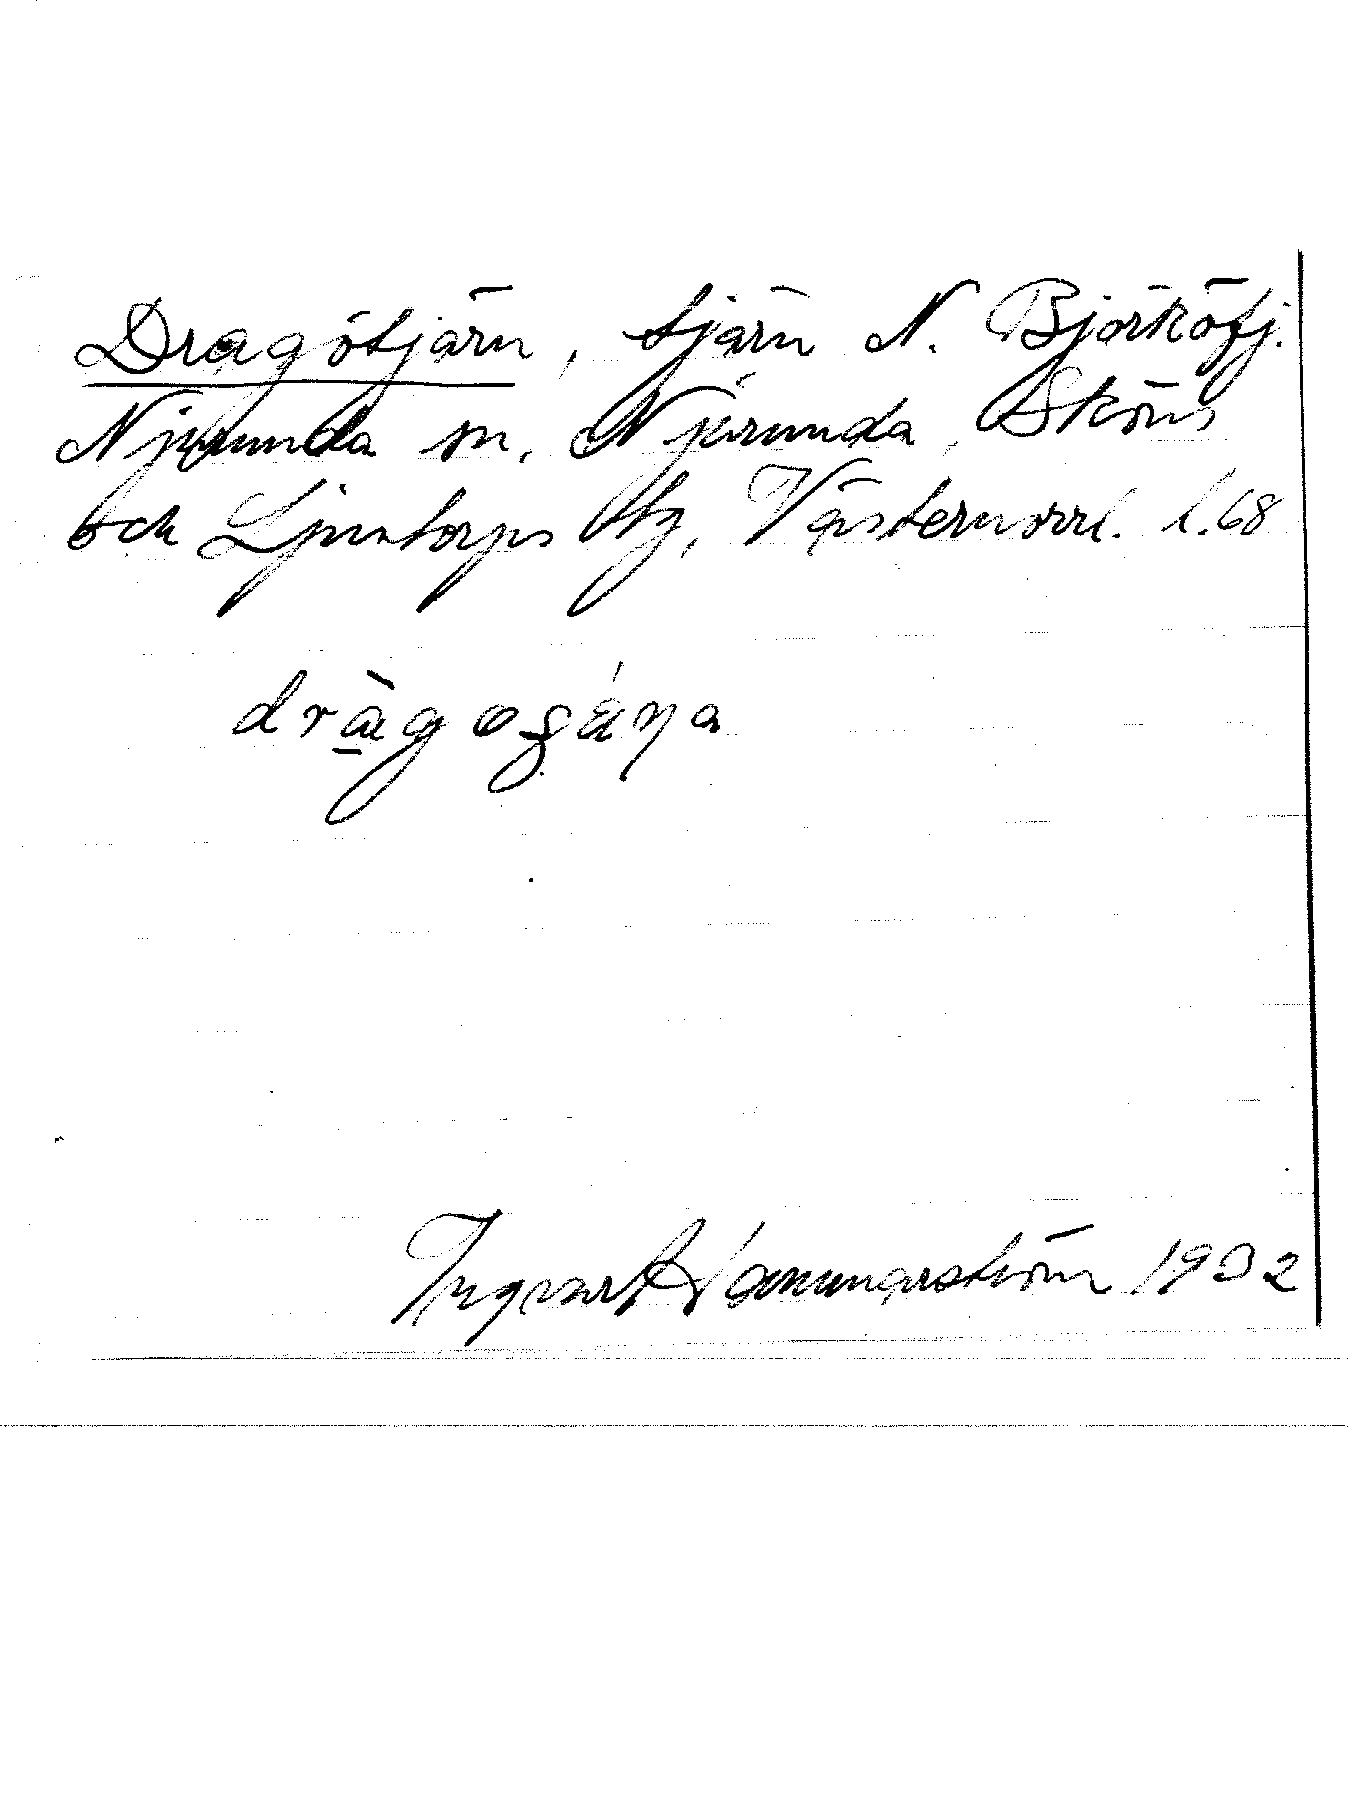 Dragötjärn, tjärn N. Björköfj.
Njurunda sn. Njurunda, Sköns
och Ljustorps tg, Västernorrl. l. 68
Ingvar Hammarström 1932